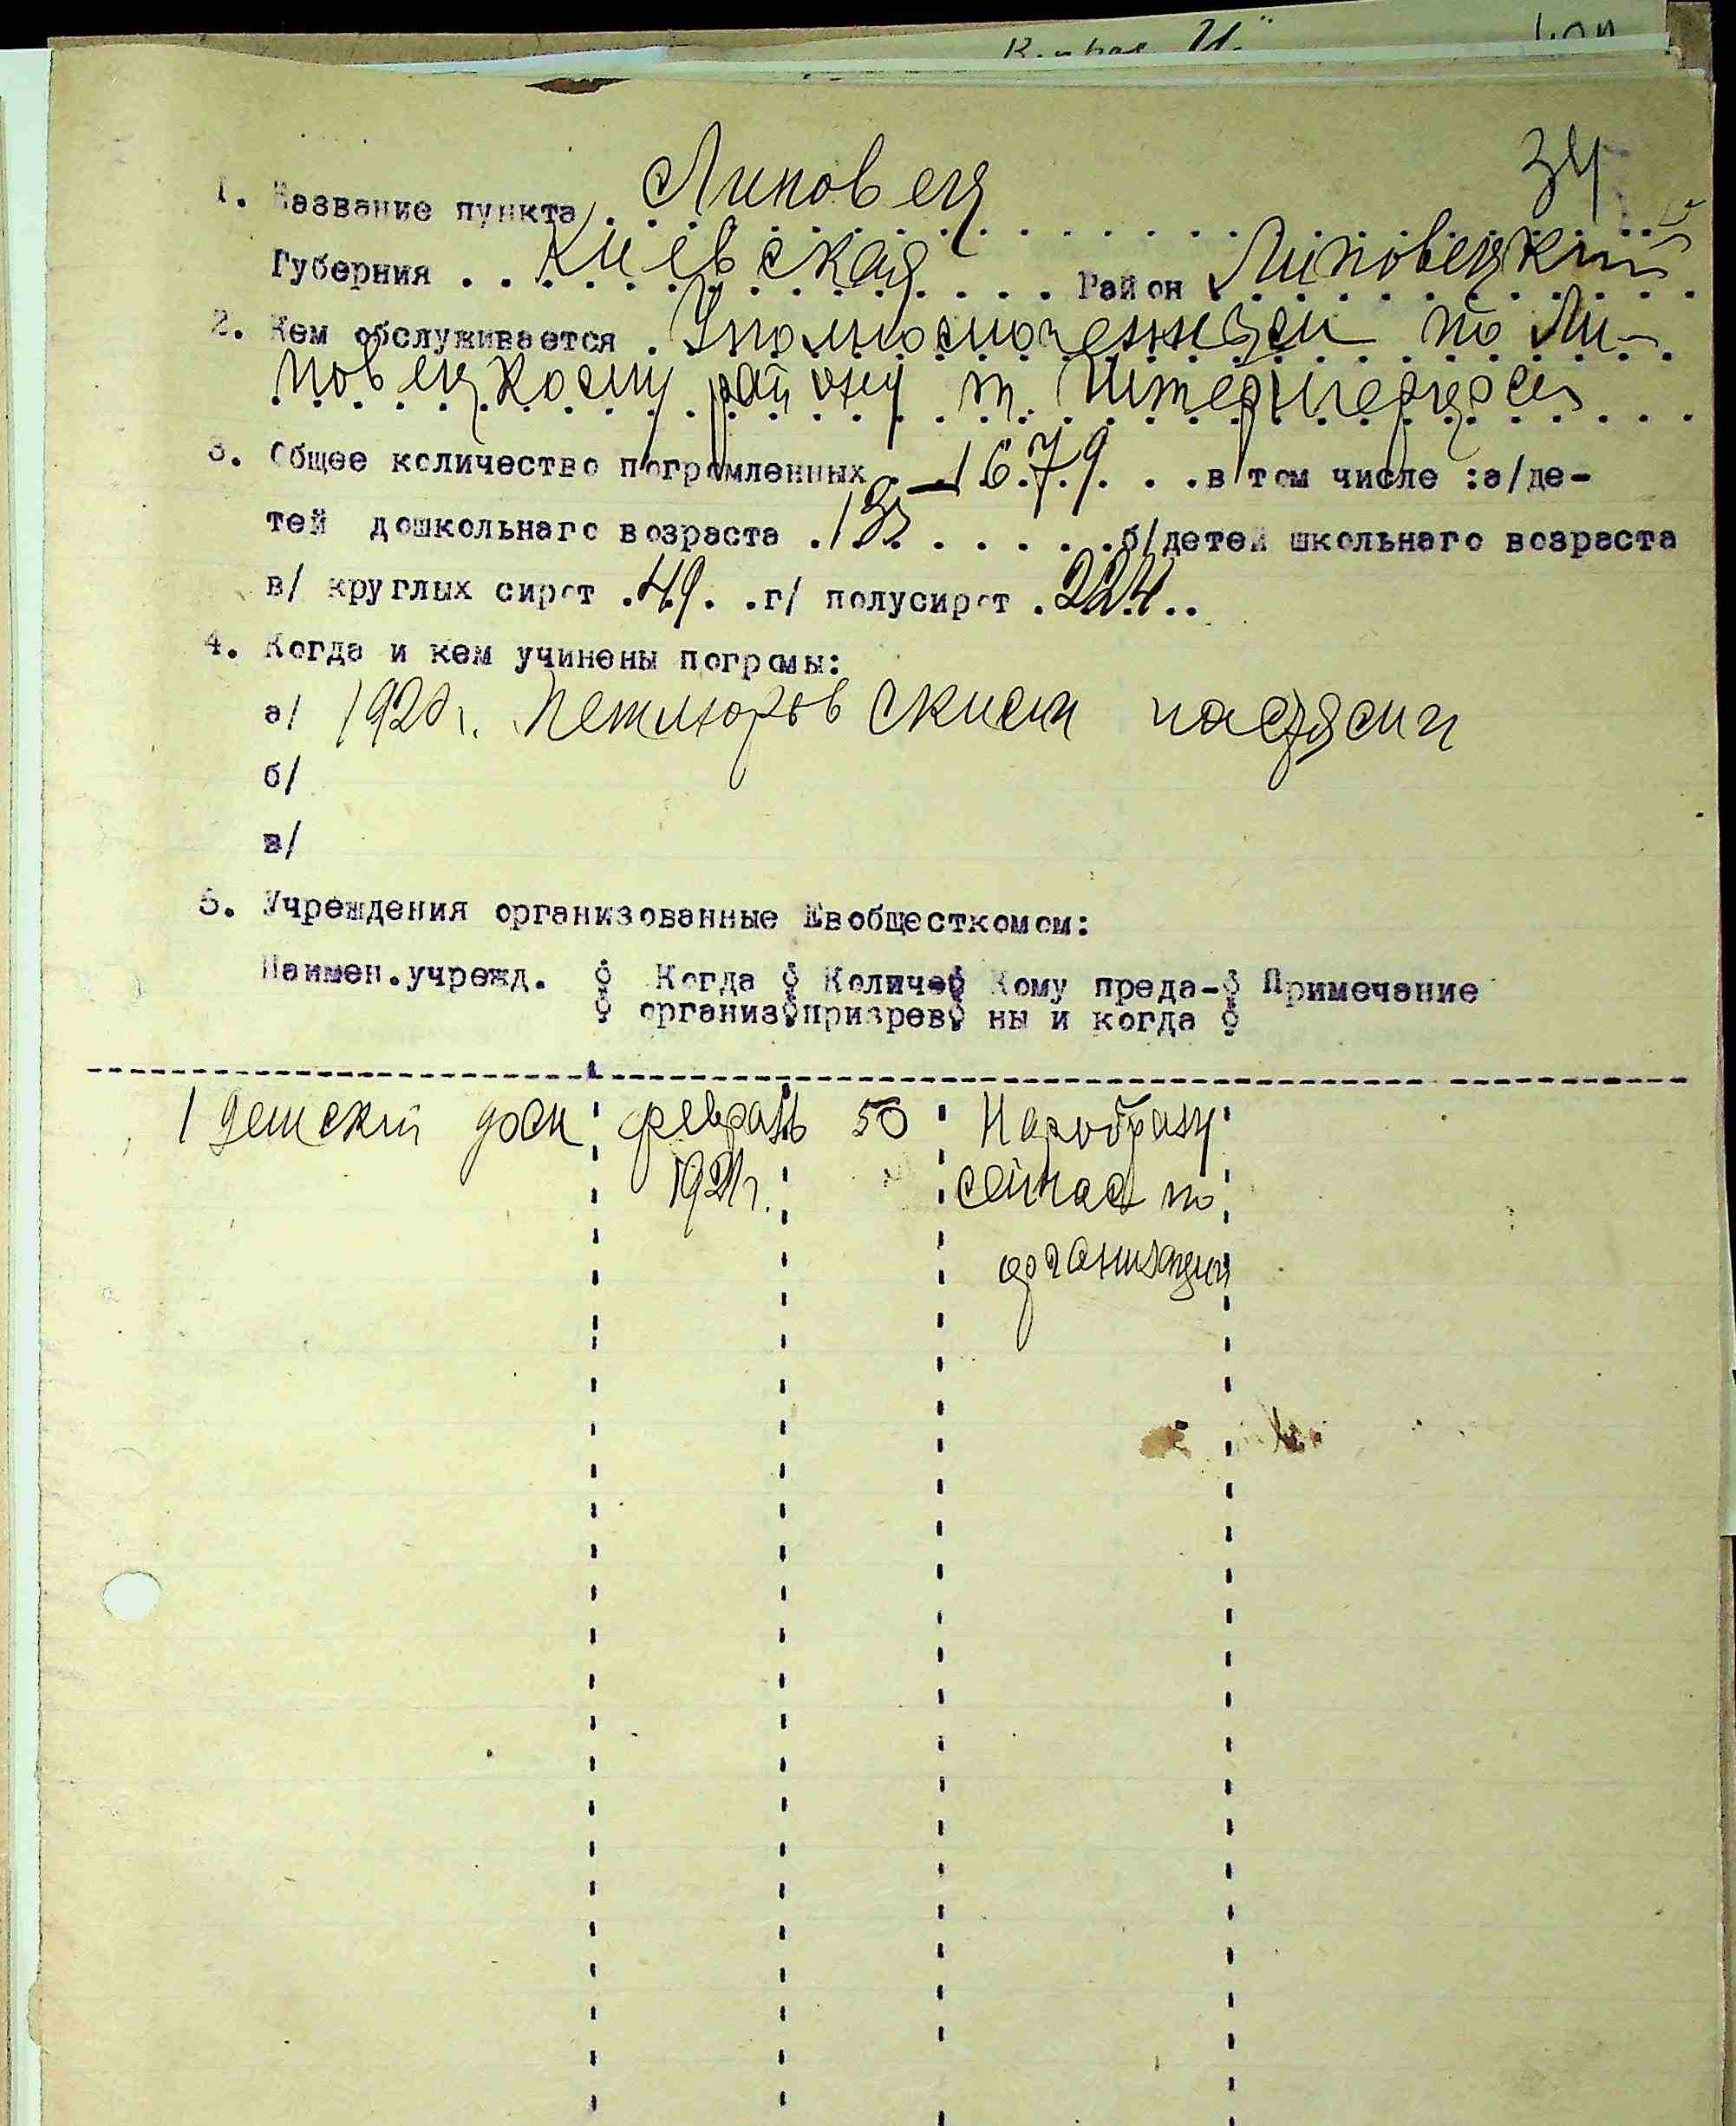 34
1. Название пункта . Липовец
Губерния . . Киевская . . . . Район Липовецкий
2. Кем обслуживается . Уполномоченным по Ли-
повецкому району т. Штернгерцом
3. Общее количество погромленных . . – 1679. . . в том числе :а/де-
тей дошкольнаго возраста . 133 . . . . . . б/детей школьнаго возраста
в/ круглых сирот . 49. . г/ полусирот . 224 . .
4. Когда и кем учинены погромы:
а/ 1920 г. Петлюровскими частями
б/
в/
5. Учреждения организованные Евобщесткомом:
Наимен.учрежд. Когда Количес Кому преда- Примечание
организ призрев ны и когда
1 детский дом февраль 50 Наробразу
1921 г. сейчас по
организации